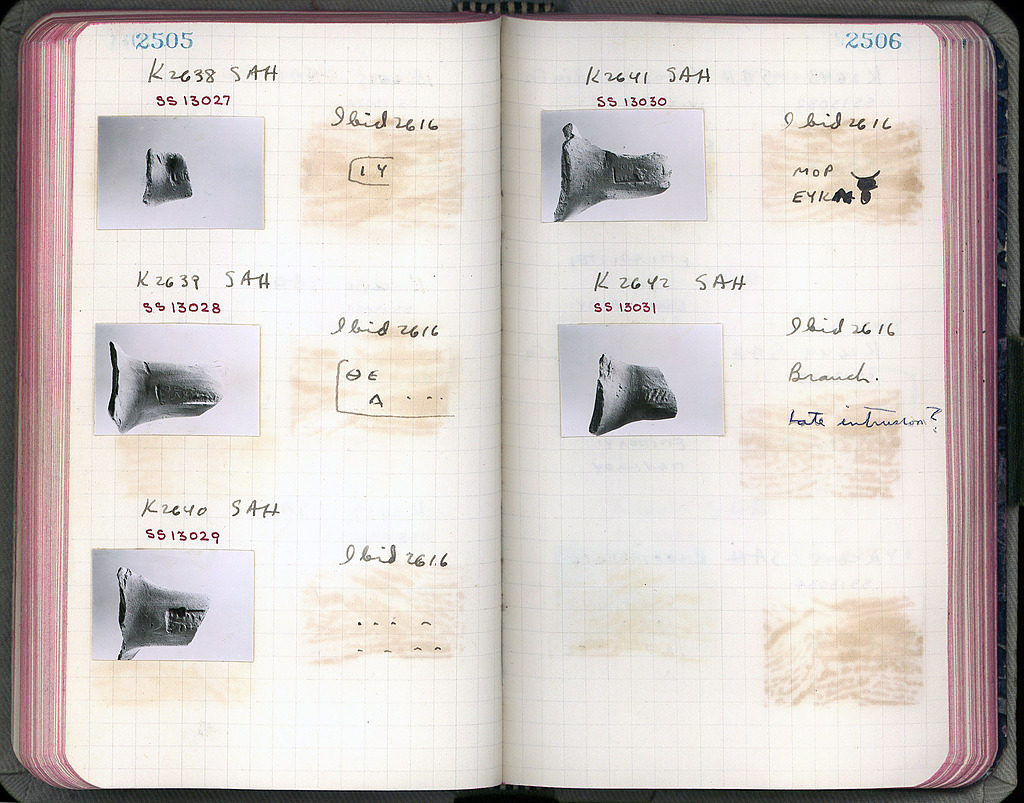 2505
K2638 SAH
SS 13027
Ibid 2616
IY
K2639 SAH
SS 13028
Ibid 2616
ΘE
A . . .
K2640 SAH
SS 13029
Ibid 2616
2506
K2641 SAH
SS 13030
Ibid 2616
MOP
EYK
K2642 SAH
SS 13031
Ibid 2616
Branch.
Late intrusion?